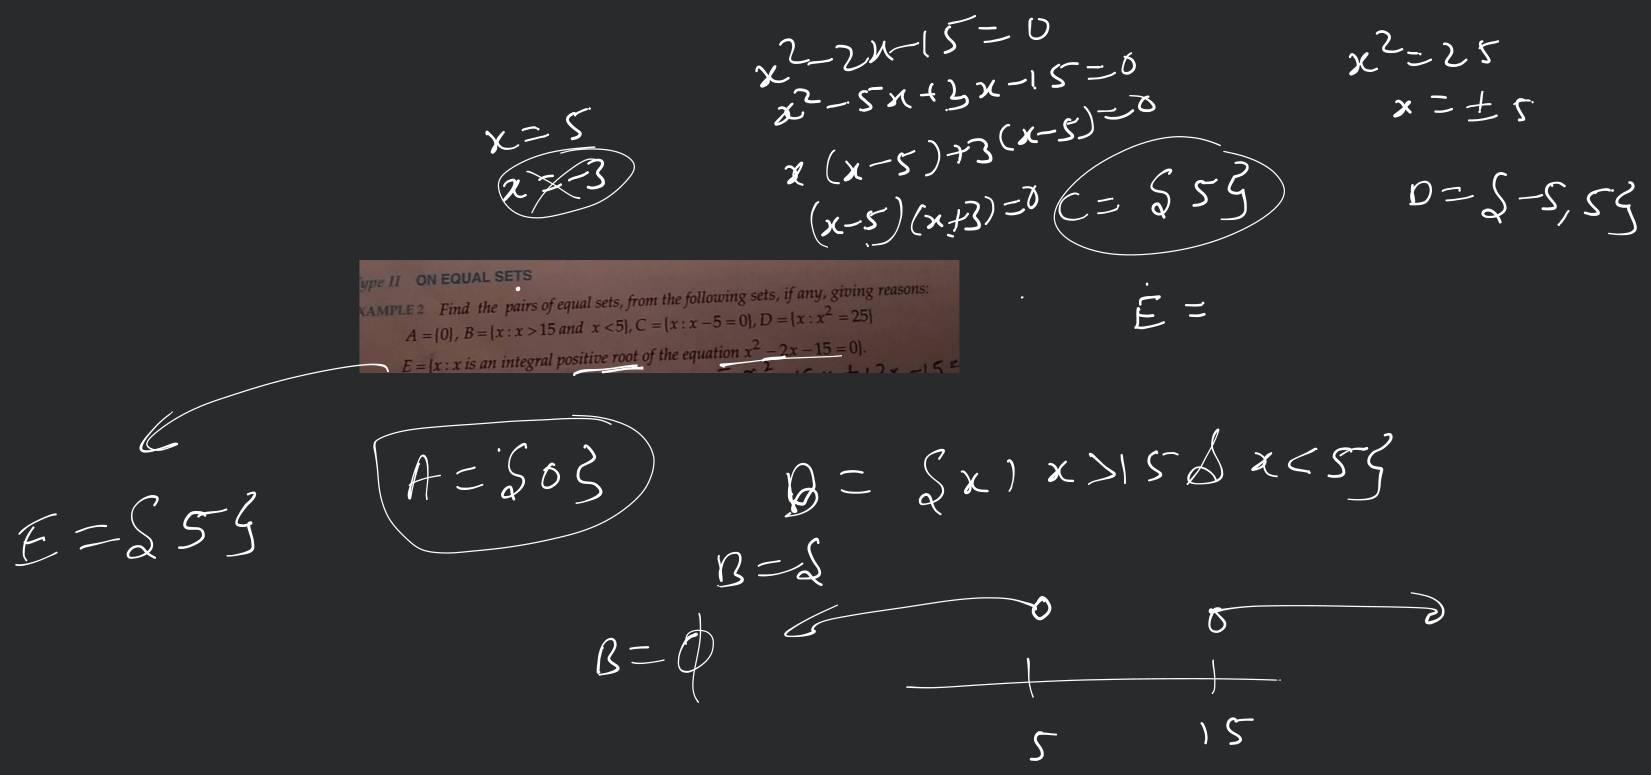 x²-2x-15=0
x²-5x+3x-15=0
x(x-5)+3(x-5)=0
(x-5)(x+3)=0
x²=25
x=±5
x=5
x=-3
C={5}
D={-5,5}
ype II ON EQUAL SETS
XAMPLE 2 Find the pairs of equal sets, from the following sets, if any, giving reasons:
A = {0}, B = {x : x > 15 and x < 5}, C = {x : x - 5 = 0}, D = {x : x² = 25}
E = {x : x is an integral positive root of the equation x² - 2x - 15 = 0}.
E =
E={5}
A={0}
B={x, x>15 & x<5}
B={
B=ϕ
5 15